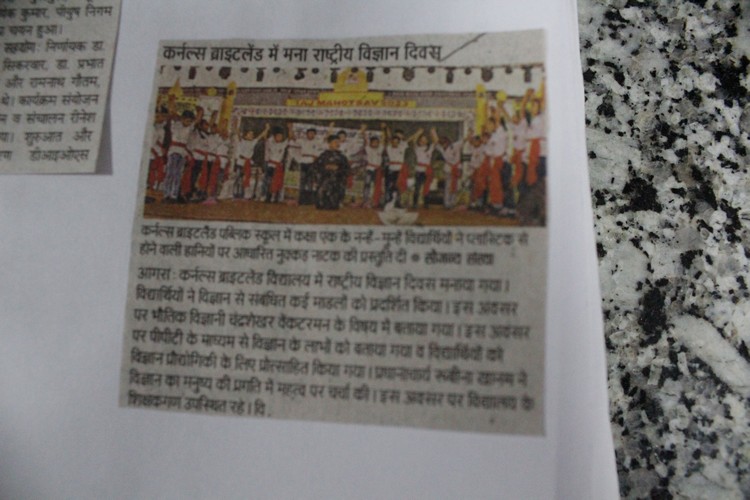 यंक कुमार, पीयुष निगम
चयन हुआ।
सहयोग: निर्णायक डा.
सिकरवार, डा. प्रभात
और रामनाथ गौतम,
थे। कार्यक्रम संयोजन
म व संचालन रीनेश
या। शुरुआत और
डीआइओएस
कर्नल्स ब्राइटलैंड में मना राष्ट्रीय विज्ञान दिवस
TAJ MAHOTSAV 2023
कर्नल्स ब्राइटलैंड पब्लिक स्कूल में कक्षा एक के नन्हें-मुन्हें विद्यार्थियों ने प्लास्टिक से
होने वाली हानियों पर आधारित नुक्कड़ नाटक की प्रस्तुति दी ● सौजन्य संस्था
आगरा: कर्नल्स ब्राइटलैंड विद्यालय में राष्ट्रीय विज्ञान दिवस मनाया गया।
विद्यार्थियों ने विज्ञान से संबंधित कई माडलों को प्रदर्शित किया। इस अवसर
पर भौतिक विज्ञानी चंद्रशेखर वेंकटरमन के विषय में बताया गया। इस अवसर
पर पीपीटी के माध्यम से विज्ञान के लाभों को बताया गया व विद्यार्थियों को
विज्ञान प्रौद्योगिकी के लिए प्रोत्साहित किया गया। प्रधानाचार्य रूबीना खानम ने
विज्ञान का मनुष्य की प्रगति में महत्व पर चर्चा की। इस अवसर पर विद्यालय के
शिक्षकगण उपस्थित रहे। वि.